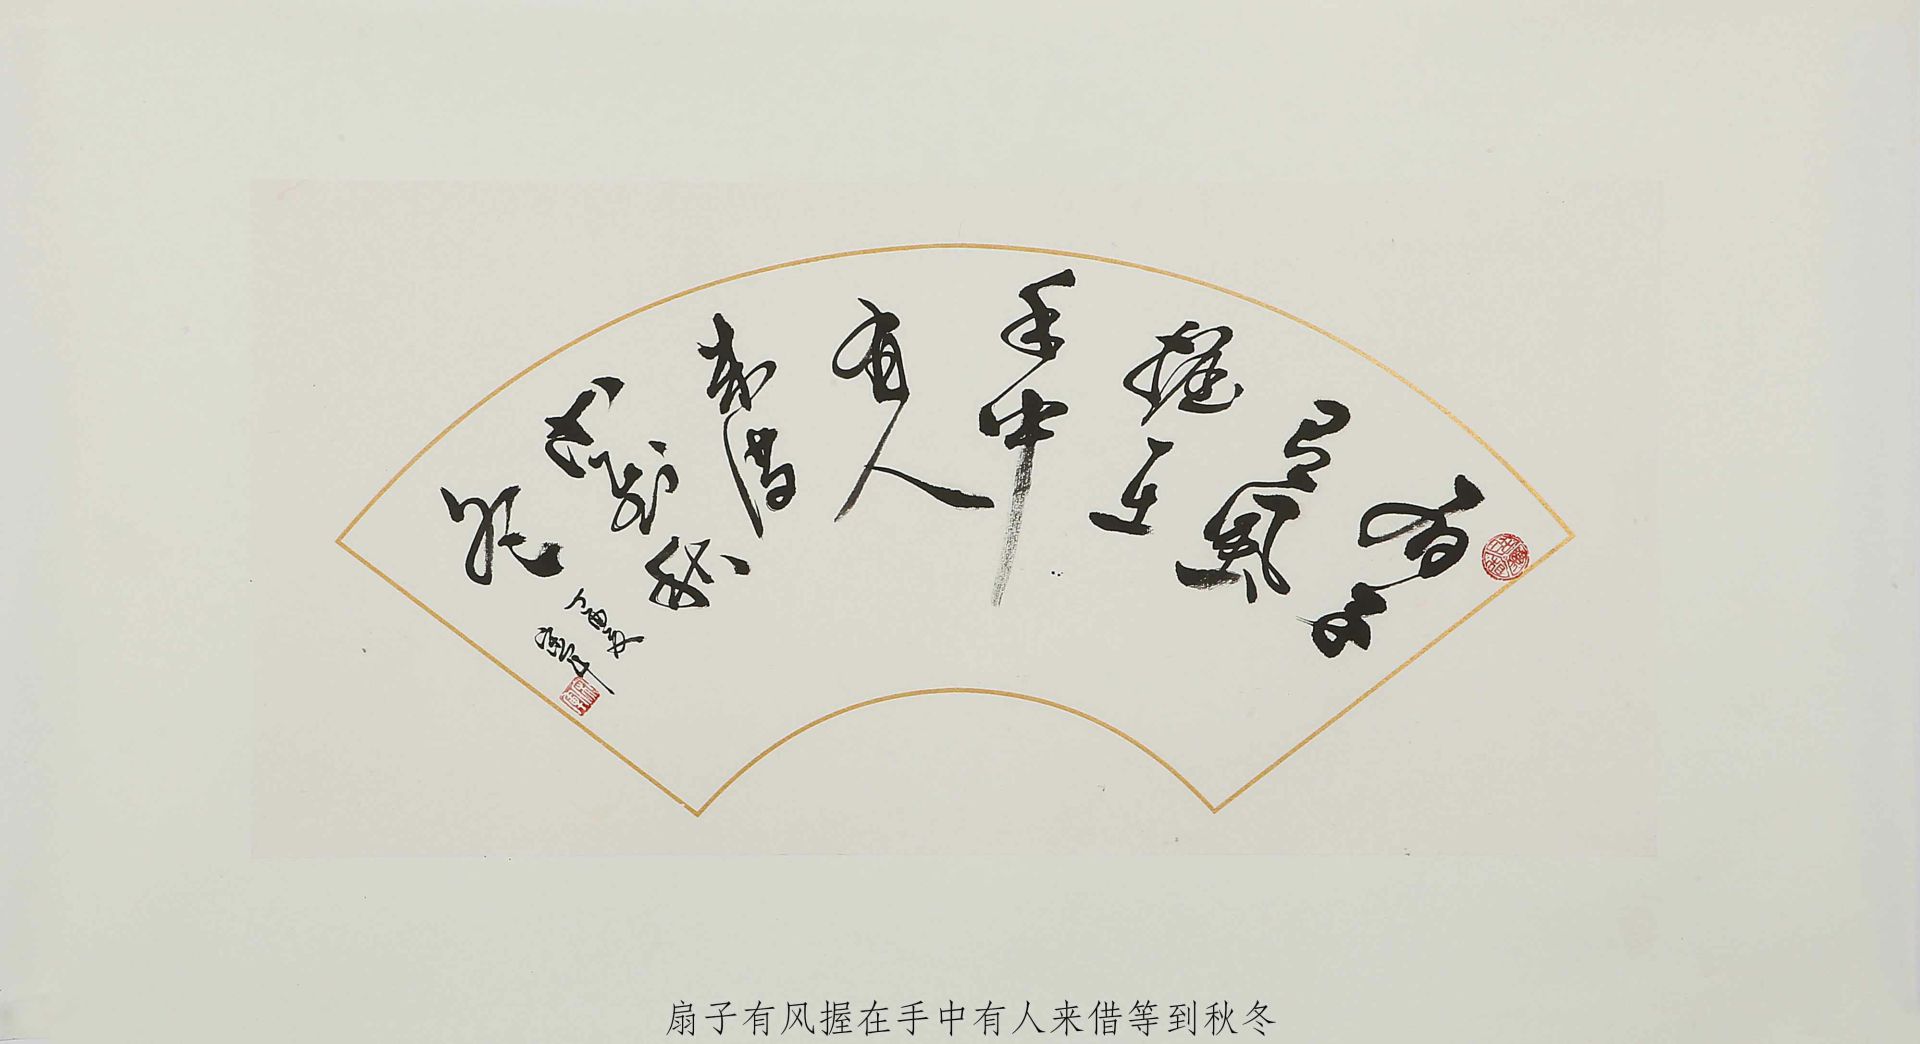 扇子
有風
握在
手中
有人
来借
等到秋
冬
扇子有风握在手中有人来借等到秋冬